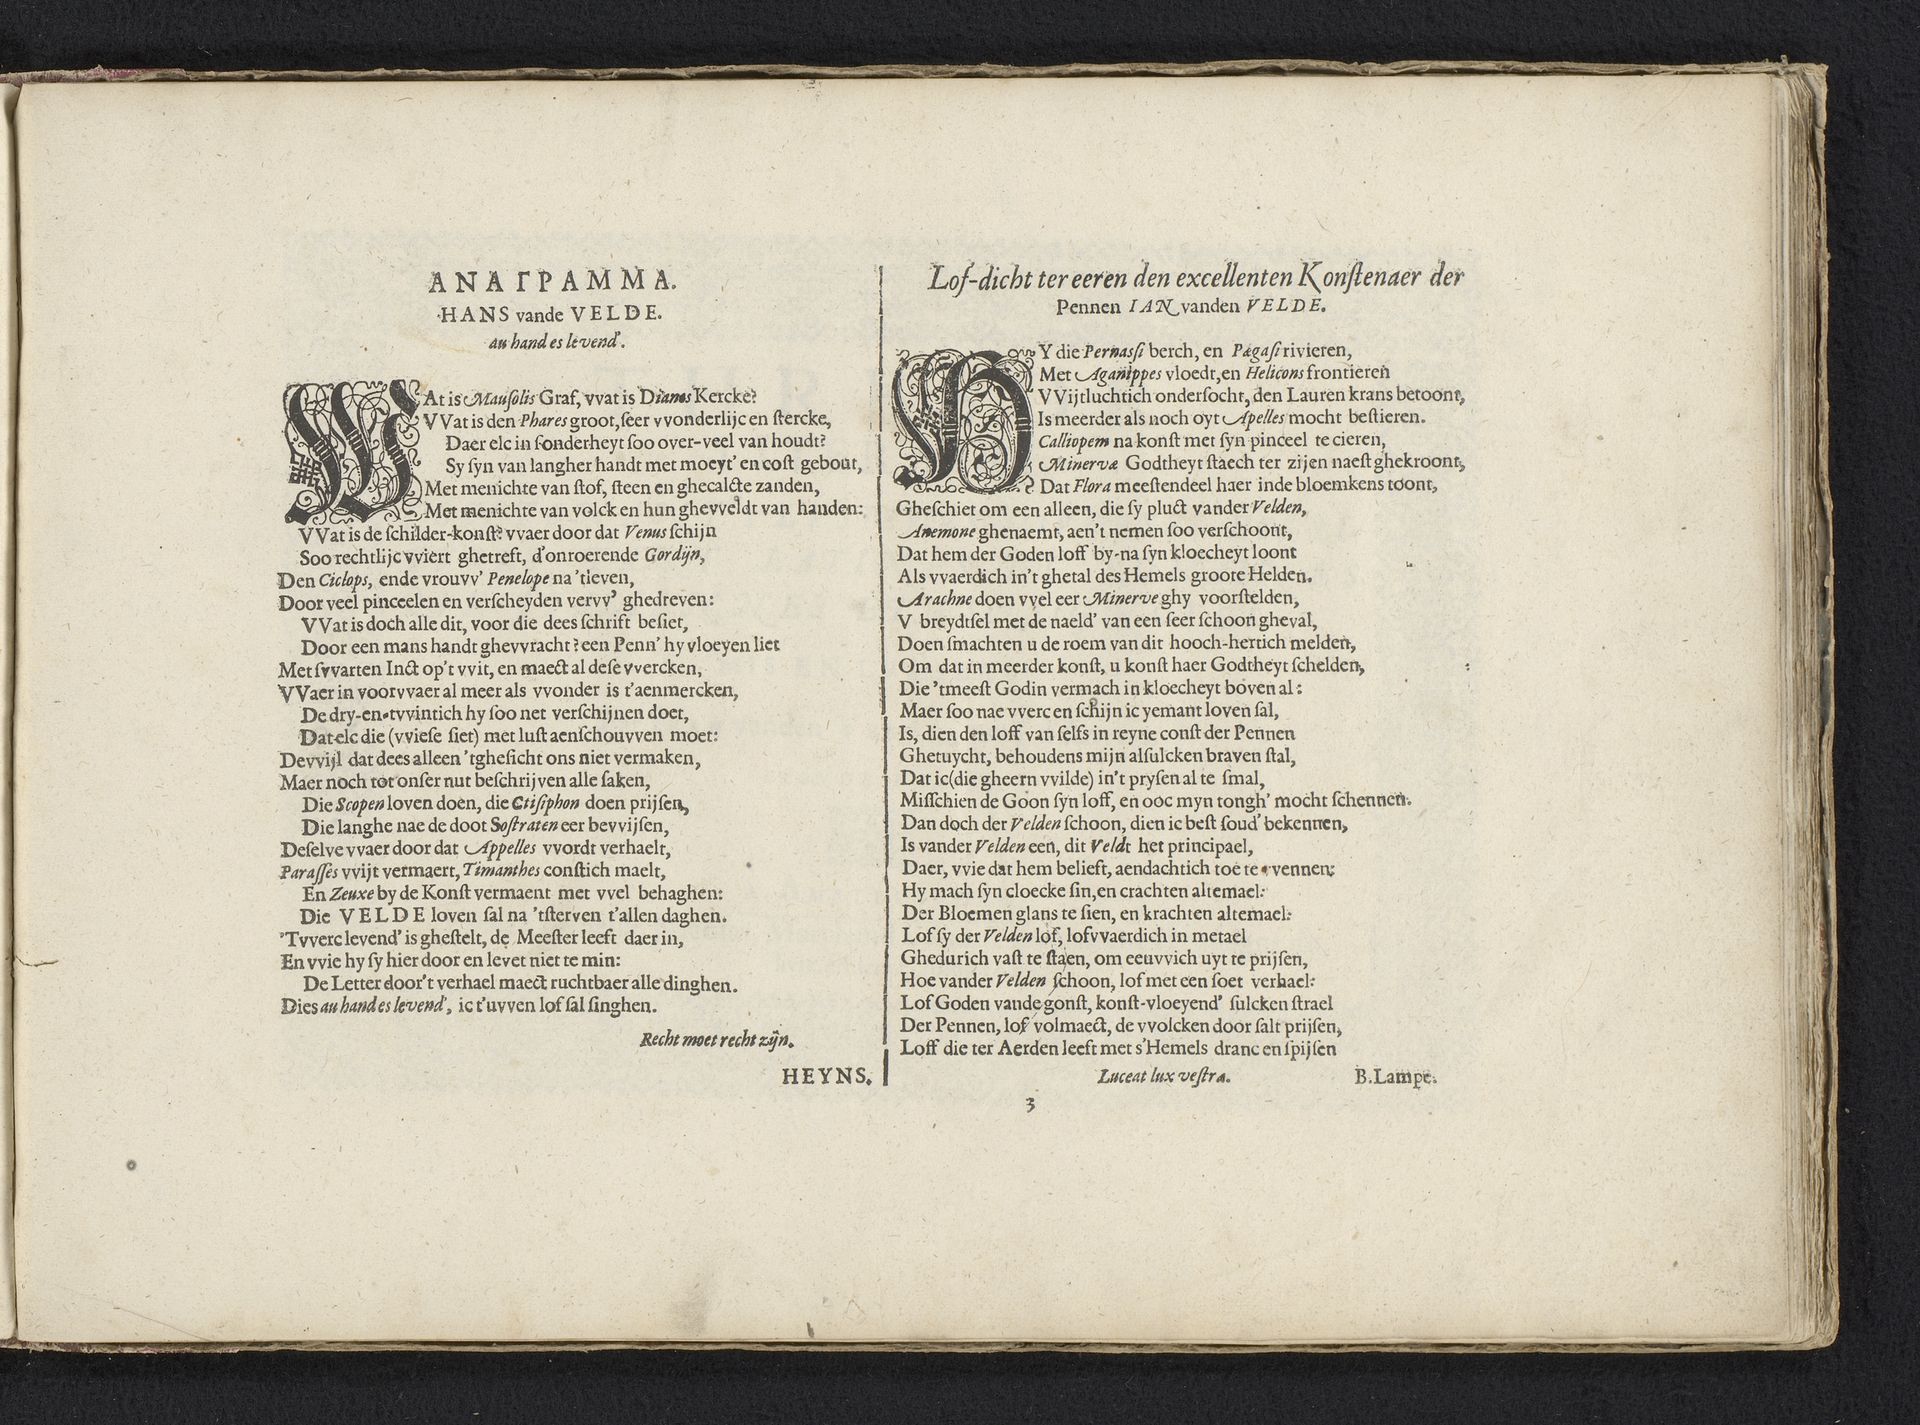 ΑΝΑΓΡΑΜΜΑ.
HANS vande VELDE.
au hand es levend'.
WAt is Mauſolis Graf, vvat is Dianes Kercke?
VVat is den Phares groot, ſeer vvonderlijc en ſtercke,
Daer elc in ſonderheyt ſoo over-veel van houdt?
Sy ſyn van langher handt met moeyt' en coſt gebout,
Met menichte van ſtof, ſteen en ghecalcte zanden,
Met menichte van volck en hun ghevveldt van handen:
VVat is de ſchilder-konſt? vvaer door dat Venus ſchijn
Soo rechtlijc vviert ghetreft, d'onroerende Gordijn,
Den Ciclops, ende vrouvv' Penelope na 'tleven,
Door veel pinceelen en verſcheyden vervv' ghedreven:
VVat is doch alle dit, voor die dees ſchrift beſiet,
Door een mans handt ghevvracht? een Penn' hy vloeyen liet
Met ſvvarten Inct op't vvit, en maect al deſe vvercken,
VVaer in voorvvaer al meer als vvonder is t'aenmercken,
De dry-en-tvvintich hy ſoo net verſchijnen doet,
Dat elc die (vvieſe ſiet) met luſt aenſchouvven moet:
Devvijl dat dees alleen 'tgheſicht ons niet vermaken,
Maer noch tot onſer nut beſchrijven alle ſaken,
Die Scopen loven doen, die Ctiſiphon doen prijſen,
Die langhe nae de doot Soſtraten eer bevvijſen,
Deſelve vvaer door dat Appelles vvordt verhaelt,
Paraſſes vvijt vermaert, Timanthes conſtich maelt,
En Zeuxe by de Konſt vermaent met vvel behaghen:
Die VELDE loven ſal na 'tſterven t'allen daghen.
'Tvverc levend' is gheſtelt, de Meeſter leeft daer in,
En vvie hy ſy hier door en levet niet te min:
De Letter door't verhael maect ruchtbaer alle dinghen.
Dies au hand es levend', ic t'uvven lof ſal ſinghen.
Recht moet recht zijn.
HEYNS.
Lof-dicht ter eeren den excellenten Konſtenaer der
Pennen IAN vanden VELDE.
HY die Pernaſſi berch, en Pægaſi rivieren,
Met Aganippes vloedt, en Helicons frontieren
VVijtluchtich onderſocht, den Lauren krans betoont,
Is meerder als noch oyt Apelles mocht beſtieren.
Calliopem na konſt met ſyn pinceel te cieren,
Minervæ Godtheyt ſtaech ter zijen naeſt ghekroont,
Dat Flora meeſtendeel haer inde bloemkens toont,
Gheſchiet om een alleen, die ſy pluct vander Velden,
Anemone ghenaemt, aen't nemen ſoo verſchoont,
Dat hem der Goden loff by-na ſyn kloecheyt loont
Als vvaerdich in't ghetal des Hemels groote Helden.
Arachne doen vvel eer Minerve ghy voorſtelden,
V breydtſel met de naeld' van een ſeer ſchoon gheval,
Doen ſmachten u de roem van dit hooch-hertich melden,
Om dat in meerder konſt, u konſt haer Godtheyt ſchelden,
Die 'tmeeſt Godin vermach in kloecheyt boven al:
Maer ſoo nae vverc en ſchijn ic yemant loven ſal,
Is, dien den loff van ſelfs in reyne conſt der Pennen
Ghetuycht, behoudens mijn alſulcken braven ſtal,
Dat ic (die gheern vvilde) in't pryſen al te ſmal,
Miſſchien de Goon ſyn loff, en ooc myn tongh' mocht ſchennen.
Dan doch der Velden ſchoon, dien ic beſt ſoud' bekennen,
Is vander Velden een, dit Veldt het principael,
Daer, vvie dat hem belieft, aendachtich toe te vvennen:
Hy mach ſyn cloecke ſin, en crachten altemael:
Der Bloemen glans te ſien, en krachten altemael:
Lof ſy der Velden lof, lofvvaerdich in metael
Ghedurich vaſt te ſtaen, om eeuvvich uyt te prijſen,
Hoe vander Velden ſchoon, lof met een ſoet verhael:
Lof Goden vande gonſt, konſt-vloeyend' ſulcken ſtrael
Der Pennen, lof volmaect, de vvolcken door ſalt prijſen,
Loff die ter Aerden leeft met s'Hemels dranc en ſpijſen
Luceat lux veſtra. B. Lampe.
3